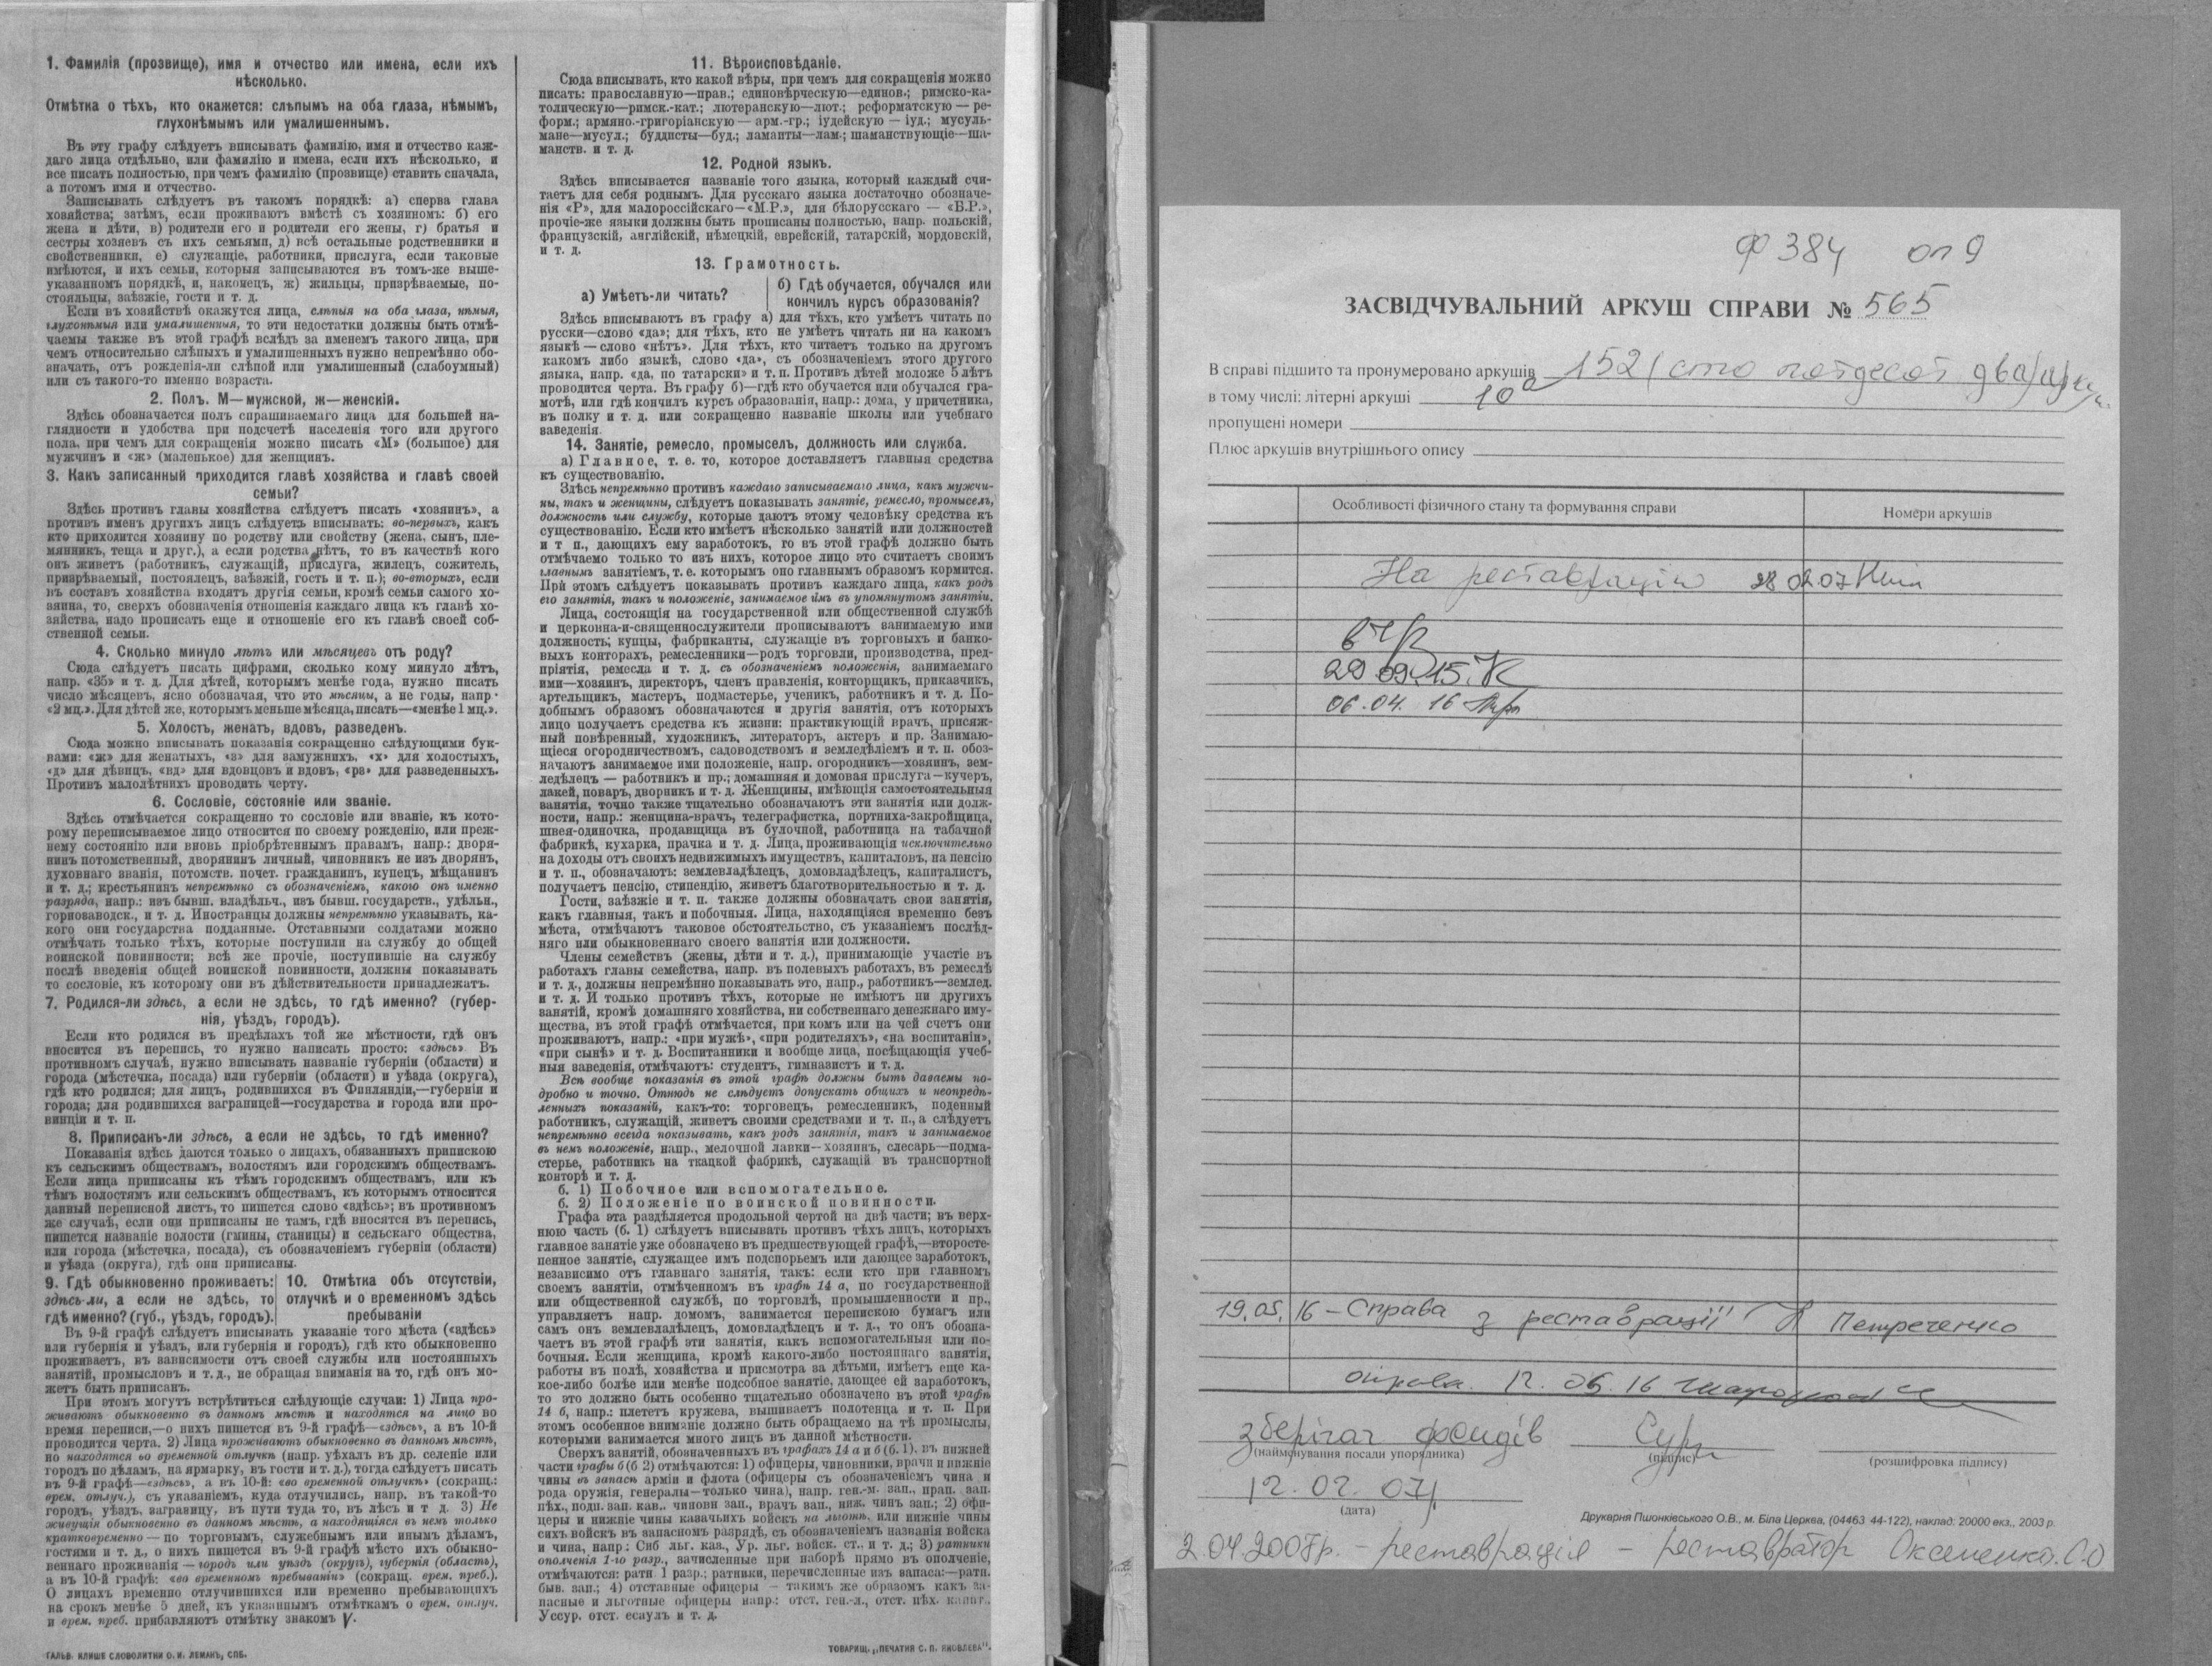 1. Фамилія (прозвище), имя и отчество или имена, если ихъ
нѣсколько.
Отмѣтка о тѣхъ, кто окажется: слѣпымъ на оба глаза, нѣмымъ,
глухонѣмымъ или умалишеннымъ.
Въ эту графу слѣдуетъ вписывать фамилію, имя и отчество каж-
даго лица отдѣльно, или фамилію и имена, если ихъ нѣсколько, и
все писать полностью, при чемъ фамилію (прозвище) ставить сначала,
а потомъ имя и отчество.
Записывать слѣдуетъ въ такомъ порядкѣ: а) сперва глава
хозяйства; затѣмъ, если проживаютъ вмѣстѣ съ хозяиномъ: б) его
жена и дѣти, в) родители его и родители его жены, г) братья и
сестры хозяевъ съ ихъ семьями, д) всѣ остальные родственники и
свойственники, е) служащіе, работники, прислуга, если таковые
имѣются, и ихъ семьи, которыя записываются въ томъ-же выше-
указанномъ порядкѣ, и, наконецъ, ж) жильцы, призрѣваемые, по-
стояльцы, заѣзжіе, гости и т. д.
Если въ хозяйствѣ окажутся лица, слѣпыя на оба глаза, нѣмыя,
глухонѣмыя или умалишенныя, то эти недостатки должны быть отмѣ-
чаемы также въ этой графѣ вслѣдъ за именемъ такого лица, при
чемъ относительно слѣпыхъ и умалишенныхъ нужно непремѣнно обо-
значать, отъ рожденія-ли слѣпой или умалишенный (слабоумный)
или съ такого-то именно возраста.
2. Полъ. М—мужской, ж—женскій.
Здѣсь обозначается полъ спрашиваемаго лица для большей на-
глядности и удобства при подсчетѣ населенія того или другого
пола, при чемъ для сокращенія можно писать «М» (большое) для
мужчинъ и «ж» (маленькое) для женщинъ.
3. Какъ записанный приходится главѣ хозяйства и главѣ своей
семьи?
Здѣсь противъ главы хозяйства слѣдуетъ писать «хозяинъ», а
противъ именъ другихъ лицъ слѣдуетъ вписывать: во-первыхъ, какъ
кто приходится хозяину по родству или свойству (жена, сынъ, пле-
мянникъ, теща и друг.), а если родства нѣтъ, то въ качествѣ кого
онъ живетъ (работникъ, служащій, прислуга, жилецъ, сожитель,
призрѣваемый, постоялецъ, заѣзжій, гость и т. п.); во-вторыхъ, если
въ составъ хозяйства входятъ другія семьи, кромѣ семьи самого хо-
зяина, то, сверхъ обозначенія отношенія каждаго лица къ главѣ хо-
зяйства, надо прописать еще и отношеніе его къ главѣ своей соб-
ственной семьи.
4. Сколько минуло лѣтъ или мѣсяцевъ отъ роду?
Сюда слѣдуетъ писать цифрами, сколько кому минуло лѣтъ,
напр. «35» и т. д. Для дѣтей, которымъ менѣе года, нужно писать
число мѣсяцевъ, ясно обозначая, что это мѣсяцы, а не годы, напр.
«2 мц.». Для дѣтей же, которымъ меньше мѣсяца, писать—«менѣе 1 мц.».
5. Холостъ, женатъ, вдовъ, разведенъ.
Сюда можно вписывать показанія сокращенно слѣдующими бук-
вами: «ж» для женатыхъ, «з» для замужнихъ, «х» для холостыхъ,
«д» для дѣвицъ, «вд» для вдовцовъ и вдовъ, «рз» для разведенныхъ.
Противъ малолѣтнихъ проводить черту.
6. Сословіе, состояніе или званіе.
Здѣсь отмѣчается сокращенно то сословіе или званіе, къ кото-
рому переписываемое лицо относится по своему рожденію, или преж-
нему состоянію или вновь пріобрѣтеннымъ правамъ, напр.: дворя-
нинъ потомственный, дворянинъ личный, чиновникъ не изъ дворянъ,
духовнаго званія, потомств. почет. гражданинъ, купецъ, мѣщанинъ
и т. д.; крестьянинъ непремѣнно съ обозначеніемъ, какого онъ именно
разряда, напр.: изъ бывш. владѣльч., изъ бывш. государств., удѣльн.,
горнозаводск., и т. д. Иностранцы должны непремѣнно указывать, ка-
кого они государства подданные. Отставными солдатами можно
отмѣчать только тѣхъ, которые поступили на службу до общей
воинской повинности; всѣ же прочіе, поступившіе на службу
послѣ введенія общей воинской повинности, должны показывать
то сословіе, къ которому они въ дѣйствительности принадлежатъ.
7. Родился-ли здѣсь, а если не здѣсь, то гдѣ именно? (губер-
нія, уѣздъ, городъ).
Если кто родился въ предѣлахъ той же мѣстности, гдѣ онъ
вносится въ перепись, то нужно написать просто: «здѣсь». Въ
противномъ случаѣ, нужно вписывать названіе губерніи (области) и
города (мѣстечка, посада) или губерніи (области) и уѣзда (округа),
гдѣ кто родился; для лицъ, родившихся въ Финляндіи,—губерніи и
города; для родившихся заграницей—государства и города или про-
винціи и т. п.
8. Приписанъ-ли здѣсь, а если не здѣсь, то гдѣ именно?
Показанія здѣсь даются только о лицахъ, обязанныхъ припискою
къ сельскимъ обществамъ, волостямъ или городскимъ обществамъ.
Если лица приписаны къ тѣмъ городскимъ обществамъ, или къ
тѣмъ волостямъ или сельскимъ обществамъ, къ которымъ относится
данный переписной листъ, то пишется слово «здѣсь»; въ противномъ
же случаѣ, если они приписаны не тамъ, гдѣ вносятся въ перепись,
пишется названіе волости (гмины, станицы) и сельскаго общества,
или города (мѣстечка, посада), съ обозначеніемъ губерніи (области)
и уѣзда (округа), гдѣ они приписаны.
9. Гдѣ обыкновенно проживаетъ:
здѣсь-ли, а если не здѣсь, то
гдѣ именно? (губ., уѣздъ, городъ).
10. Отмѣтка объ отсутствіи,
отлучкѣ и о временномъ здѣсь
пребываніи
Въ 9-й графѣ слѣдуетъ вписывать указаніе того мѣста («здѣсь»
или губернія и уѣздъ, или губернія и городъ), гдѣ кто обыкновенно
проживаетъ, въ зависимости отъ своей службы или постоянныхъ
занятій, промысловъ и т. д., не обращая вниманія на то, гдѣ онъ мо-
жетъ быть приписанъ.
При этомъ могутъ встрѣтиться слѣдующіе случаи: 1) Лица про-
живаютъ обыкновенно въ данномъ мѣстѣ и находятся на лицо во
время переписи,—о нихъ пишется въ 9-й графѣ—«здѣсь», а въ 10-й
проводится черта. 2) Лица проживаютъ обыкновенно въ данномъ мѣстѣ,
но находятся во временной отлучкѣ (напр. уѣхалъ въ др. селеніе или
городъ по дѣламъ, на ярмарку, въ гости и т. д.), тогда слѣдуетъ писать
въ 9-й графѣ—«здѣсь», а въ 10-й: «во временной отлучкѣ» (сокращ.:
врем. отлуч.), съ указаніемъ, куда отлучились, напр. въ такой-то
городъ, уѣздъ, заграницу, въ пути туда то, въ лѣсъ и т д. 3) Не
живущія обыкновенно въ данномъ мѣстѣ, а находящіяся въ немъ только
кратковременно — по торговымъ, служебнымъ или инымъ дѣламъ,
гостями и т. д., о нихъ пишется въ 9-й графѣ мѣсто ихъ обыкно-
веннаго проживанія—городъ или уѣздъ (округъ), губернія (область),
а въ 10-й графѣ: «во временномъ пребываніи» (сокращ. врем. преб.).
О лицахъ временно отлучившихся или временно пребывающихъ
на срокъ менѣе 5 дней, къ указаннымъ отмѣткамъ о врем. отлуч.
и врем. преб. прибавляютъ отмѣтку знакомъ V.
ГАЛЬВ. КЛИШЕ СЛОВОЛИТНИ О. И. ЛЕМАНЪ, СПБ.
11. Вѣроисповѣданіе.
Сюда вписывать, кто какой вѣры, при чемъ для сокращенія можно
писать: православную—прав.; единовѣрческую—единов.; римско-ка-
толическую—римск.-кат.; лютеранскую—лют.; реформатскую — ре-
форм.; армяно.-григоріанскую — арм.-гр.; іудейскую — іуд.; мусуль-
мане—мусул.; буддисты—буд.; ламаиты—лам.; шаманствующіе—ша-
манств. и т. д.
12. Родной языкъ.
Здѣсь вписывается названіе того языка, который каждый счи-
таетъ для себя роднымъ. Для русскаго языка достаточно обозначе-
нія «Р», для малороссійскаго—«М.Р.», для бѣлорусскаго — «Б.Р.»,
прочіе-же языки должны быть прописаны полностью, напр. польскій,
французскій, англійскій, нѣмецкій, еврейскій, татарскій, мордовскій,
и т. д.
13. Грамотность.
а) Умѣетъ-ли читать?
б) Гдѣ обучается, обучался или
кончилъ курсъ образованія?
Здѣсь вписываютъ въ графу а) для тѣхъ, кто умѣетъ читать по
русски—слово «да»; для тѣхъ, кто не умѣетъ читать ни на какомъ
языкѣ — слово «нѣтъ». Для тѣхъ, кто читаетъ только на другомъ
какомъ либо языкѣ, слово «да», съ обозначеніемъ этого другого
языка, напр. «да, по татарски» и т. п. Противъ дѣтей моложе 5 лѣтъ
проводится черта. Въ графу б)—гдѣ кто обучается или обучался гра-
мотѣ, или гдѣ кончилъ курсъ образованія, напр.: дома, у причетника,
въ полку и т. д. или сокращенно названіе школы или учебнаго
заведенія.
14. Занятіе, ремесло, промыселъ, должность или служба.
а) Главное, т. е. то, которое доставляетъ главныя средства
къ существованію.
Здѣсь непремѣнно противъ каждаго записываемаго лица, какъ мужчи-
ны, такъ и женщины, слѣдуетъ показывать занятіе, ремесло, промыселъ,
должность или службу, которые даютъ этому человѣку средства къ
существованію. Если кто имѣетъ нѣсколько занятій или должностей
и т п., дающихъ ему заработокъ, то въ этой графѣ должно быть
отмѣчаемо только то изъ нихъ, которое лицо это считаетъ своимъ
главнымъ занятіемъ, т. е. которымъ оно главнымъ образомъ кормится.
При этомъ слѣдуетъ показывать противъ каждаго лица, какъ родъ
его занятія, такъ и положеніе, занимаемое имъ въ упомянутомъ занятіи.
Лица, состоящія на государственной или общественной службѣ
и церковна-и-священнослужители прописываютъ занимаемую ими
должность; купцы, фабриканты, служащіе въ торговыхъ и банко-
выхъ конторахъ, ремесленники—родъ торговли, производства, пред-
пріятія, ремесла и т. д. съ обозначеніемъ положенія, занимаемаго
ими—хозяинъ, директоръ, членъ правленія, конторщикъ, приказчикъ,
артельщикъ, мастеръ, подмастерье, ученикъ, работникъ и т. д. По-
добнымъ образомъ обозначаются и другія занятія, отъ которыхъ
лицо получаетъ средства къ жизни: практикующій врачъ, присяж-
ный повѣренный, художникъ, литераторъ, актеръ и пр. Занимаю-
щіеся огородничествомъ, садоводствомъ и земледѣліемъ и т. п. обоз-
начаютъ занимаемое ими положеніе, напр. огородникъ—хозяинъ, зем-
ледѣлецъ — работникъ и пр.; домашняя и домовая прислуга—кучеръ,
лакей, поваръ, дворникъ и т. д. Женщины, имѣющія самостоятельныя
занятія, точно также тщательно обозначаютъ эти занятія или долж-
ности, напр.: женщина-врачъ, телеграфистка, портниха-закройщица,
швея-одиночка, продавщица въ булочной, работница на табачной
фабрикѣ, кухарка, прачка и т. д. Лица, проживающія исключительно
на доходы отъ своихъ недвижимыхъ имуществъ, капиталовъ, на пенсію
и т. п., обозначаютъ: землевладѣлецъ, домовладѣлецъ, капиталистъ,
получаетъ пенсію, стипендію, живетъ благотворительностью и т. д.
Гости, заѣзжіе и т. п. также должны обозначать свои занятія,
какъ главныя, такъ и побочныя. Лица, находящіяся временно безъ
мѣста, отмѣчаютъ таковое обстоятельство, съ указаніемъ послѣд-
няго или обыкновеннаго своего занятія или должности.
Члены семействъ (жены, дѣти и т. д.), принимающіе участіе въ
работахъ главы семейства, напр. въ полевыхъ работахъ, въ ремеслѣ
и т. д., должны непремѣнно показывать это, напр., работникъ—землед.
и т. д. И только противъ тѣхъ, которые не имѣютъ ни другихъ
занятій, кромѣ домашняго хозяйства, ни собственнаго денежнаго иму-
щества, въ этой графѣ отмѣчается, при комъ или на чей счетъ они
проживаютъ, напр.: «при мужѣ», «при родителяхъ», «на воспитаніи»,
«при сынѣ» и т. д. Воспитанники и вообще лица, посѣщающія учеб-
ныя заведенія, отмѣчаютъ: студентъ, гимназистъ и т. д.
Всѣ вообще показанія въ этой графѣ должны быть даваемы по-
дробно и точно. Отнюдь не слѣдуетъ допускать общихъ и неопредѣ-
ленныхъ показаній, какъ-то: торговецъ, ремесленникъ, поденный
работникъ, служащій, живетъ своими средствами и т. п., а слѣдуетъ
непремѣнно всегда показывать, какъ родъ занятія, такъ и занимаемое
въ немъ положеніе, напр., мелочной лавки—хозяинъ, слесарь—подма-
стерье, работникъ на ткацкой фабрикѣ, служащій въ транспортной
конторѣ и т. д.
б. 1) Побочное или вспомогательное.
б. 2) Положеніе по воинской повинности.
Графа эта раздѣляется продольной чертой на двѣ части; въ верх-
нюю часть (б. 1) слѣдуетъ вписывать противъ тѣхъ лицъ, которыхъ
главное занятіе уже обозначено въ предшествующей графѣ,—второсте-
пенное занятіе, служащее имъ подспорьемъ или дающее заработокъ,
независимо отъ главнаго занятія, такъ: если кто при главномъ
своемъ занятіи, отмѣченномъ въ графѣ 14 а, по государственной
или общественной службѣ, по торговлѣ, промышленности и пр.,
управляетъ напр. домомъ, занимается перепискою бумагъ или
самъ онъ землевладѣлецъ, домовладѣлецъ и т. д., то онъ обозна-
чаетъ въ этой графѣ эти занятія, какъ вспомогательныя или по-
бочныя. Если женщина, кромѣ какого-либо постояннаго занятія,
работы въ полѣ, хозяйства и присмотра за дѣтьми, имѣетъ еще ка-
кое-либо болѣе или менѣе подсобное занятіе, дающее ей заработокъ,
то это должно быть особенно тщательно обозначено въ этой графѣ
14 б, напр.: плететъ кружева, вышиваетъ полотенца и т. п. При
этомъ особенное вниманіе должно быть обращаемо на тѣ промыслы,
которыми занимается много лицъ въ данной мѣстности.
Сверхъ занятій, обозначенныхъ въ графахъ 14 а и б (б. 1). въ нижней
части графы б (б 2) отмѣчаются: 1) офицеры, чиновники, врачи и нижніе
чины въ запасѣ арміи и флота (офицеры съ обозначеніемъ чина и
рода оружія, генералы—только чина), напр. ген.-м. зап., прап. зап.
пѣх., подп. зап. кав.. чиновн зап., врачъ зап., ниж. чинъ зап.; 2) офи-
церы и нижніе чины казачьихъ войскъ на льготѣ, или нижніе чины
сихъ войскъ въ запасномъ разрядѣ, съ обозначеніемъ названія войска
и чина, напр: Сиб льг. каз., Ур. льг. войск. ст.. и т. д.; 3) ратники
ополченія 1-го разр., зачисленные при наборѣ прямо въ ополченіе,
отмѣчаются: ратн 1 разр.; ратники, перечисленные изъ запаса:—ратн.
быв. зап.; 4) отставные офицеры — такимъ же образомъ какъ за-
пасные и льготные офицеры напр.: отст. ген.-л., отст. пѣх. капит..
Уссур. отст. есаулъ и т. д.
ТОВАРИЩ. „ПЕЧАТНЯ С. П. ЯКОВЛЕВА".
Ф 384 оп 9
ЗАСВІДЧУВАЛЬНИЙ АРКУШ СПРАВИ № 565
В справі підшито та пронумеровано аркушів 152 (сто пятдесят два) арк.
в тому числі: літерні аркуші 10а
пропущені номери
Плюс аркушів внутрішнього опису
Особливості фізичного стану та формування справи
Номери аркушів
На реставрацію 28 02 07
29.09.15.
06.04. 16
19.05.16 – Справа з реставрації Петреченко
12. 05. 16
зберігач фондів
(найменування посали упорядника)
(підпис)
(розшифровка підпису)
12. 02. 07
(дата)
Друкарня Пшонківського О.В., м. Біла Церква, (04463 44-122), наклад: 20000 екз., 2003 р.
2.04.2007р. – реставрація – реставратор Оксененко.О.О